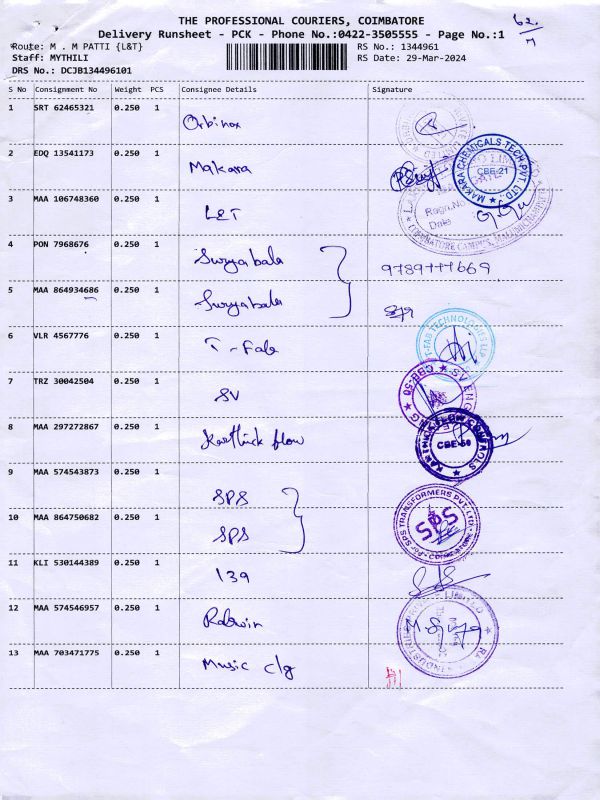 THE PROFESSIONAL COURIERS, COIMBATORE
Delivery Runsheet - PCK - Phone No.:0422-3505555 - Page No.:1
62
7
Route: M . M PATTI {L&T}
RS No.: 1344961
Staff: MYTHILI
RS Date: 29-Mar-2024
DRS No.: DCJB134496101
S No Consignment No Weight PCS Consignee Details Signature
1 SRT 62465321 0.250 1 Orbinox
2 EDQ 13541173 0.250 1 Makara
MAKARA CHEMICALS TECH PVT. LTD.
CBE-21
3 MAA 106748360 0.250 1 L&T
Regn.No
Date
COIMBATORE CAMPUS,
4 PON 7968676 0.250 1 Suryabala 9789777669
5 MAA 864934686 0.250 1 Suryabala
6 VLR 4567776 0.250 1 T-Fab
T-FAB TECHNOLOGIES LLP
7 TRZ 30042504 0.250 1 SV
SV ENG
CBE-50
8 MAA 297272867 0.250 1 Karthick flow
KARTHICK FLOW CONTROLS
CBE-50
9 MAA 574543873 0.250 1 SPS
10 MAA 864750682 0.250 1 SPS
For SPS TRANSFORMERS PVT. LTD.
SPS
COIMBATORE
11 KLI 530144389 0.250 1 139
12 MAA 574546957 0.250 1 Rabwin
INDUSTRIES LIMITED
13 MAA 703471775 0.250 1 Music clg